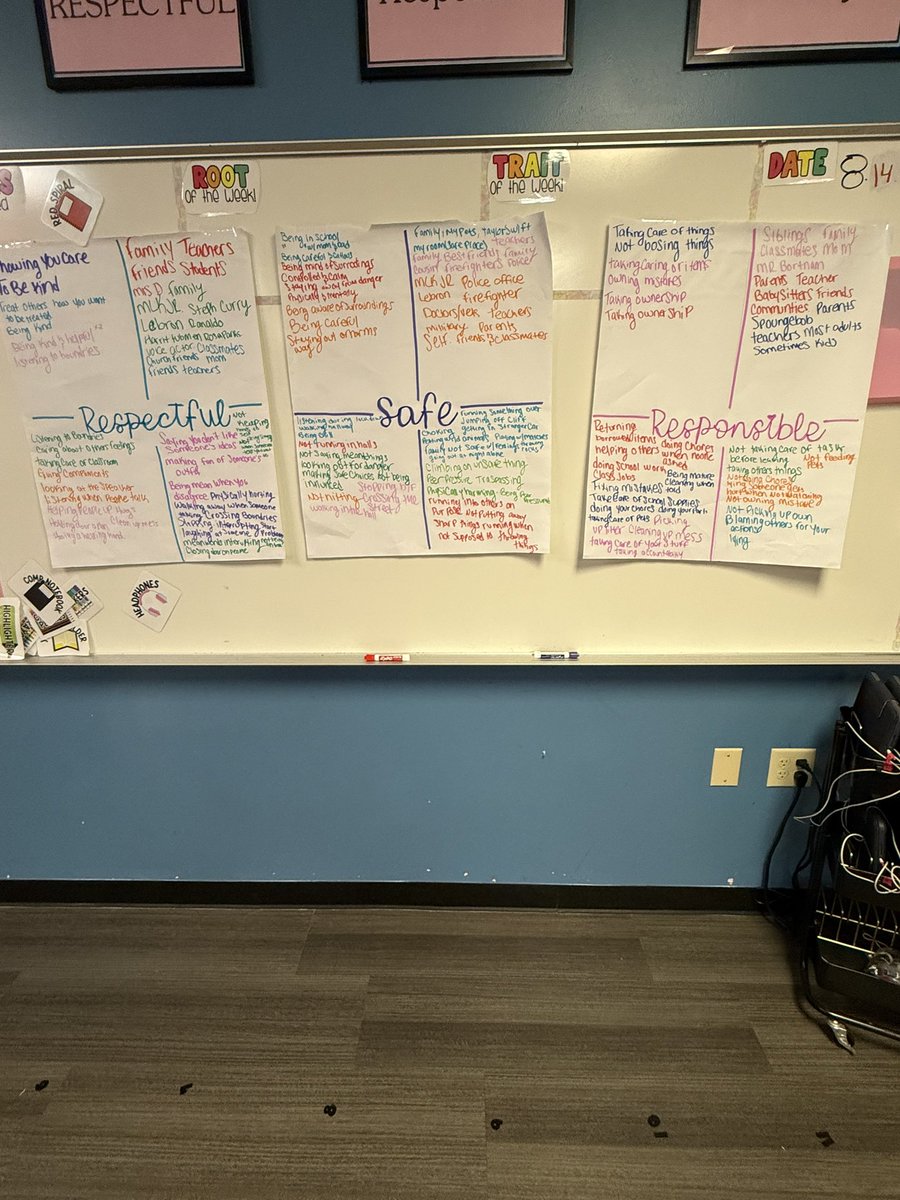 RESPECTFUL
ROOT
OF the WEEK!
TRAIT
OF the WEEK!
DATE
8.14
RED SPIRAL
Showing You Care
To Be Kind
Treat others how you want
to be treated
Being Kind
Being Kind & helpful
listening to boundaries
Family Teachers
Friends Students
Mrs D Family
MLK JR Steph Curry
Lebron Ronaldo
Harriet Tubman Rosa Parks
Voice actor Classmates
Church Friends Mom
Friends teachers
Respectful
Listening to Boundaries
Caring about others feelings
taking care of classroom
Giving Comments
looking at the speaker
listening when People talk
Helping People up
Holding door open Clean up mess
Giving a helping hand
Saying you don't like
Someone's ideas
making fun of Someones
outfit
Being mean when you
disagree Physically harming
Walking away when someone
talking Crossing Boundaries
Slipping interrupting
laughing at Someone
mean words interrupting
Closing door on Some
Being in School
w/ mom & dad
Being Careful
being mind of Surrondings
Controlled & Calm
Staying away from danger
Physically & mentally
Being aware of Surroundings
Being Careful
Staying out of harms
way
Family, My Pets, Taylor Swift
my room (Safe Place) teachers
Family Best friends family
Cousin firefighters Police
MLK JR Police office
Lebron firefighter
Doctors/Vets Teachers
military Parents
Self Friends & Classmates
Safe
listening during lockdown
walking in hall
Being calm
Not running in halls
Not Saying mean things
looking out for danger
making Safe Choices Not being
nuances Stopping BFF
Not hitting Crossing the
walking in the hall Street
running Something over
Jumping off Cliff
Choking getting in Stranger Car
Petting wild animals Playing w/matches
Climbing on unsafe thing
Peer Pressure Trespassing
Physically harming
running into others on
Purpose Not Putting away
sharp things running when
not Supposed to throwing
things
Taking Care of things
Not bosing things
taking caring of items
owning mistakes
Taking ownership
Taking ownership
Siblings family
Classmates Mom
MR. Bortnam
Parents Teacher
Babysitters Friends
Communities Parents
Spoungebob
teachers Most adults
Sometimes Kids
Responsible
Returning
borrowed items doing Chores
helping others when none
doing School work asked
Class Jobs Being mature
Fixing mistakes Cleaning when
told
Take Care of School Supplies
doing your chores doing your Part
taking Care of Pets Picking
up litter Cleaning up mess
taking Care of Your Stuff
taking accountability
Not taking care of tasks
before leaving Not feeding
taking others things Pets
Not doing Chores
lying Someone gets
hurt when not listening
Not owning mistakes
Not Picking up own
Blaming others for your
actions
lying
COMP NOTEBOOK
HEADPHONES
HIGHLIGHT
EXPO